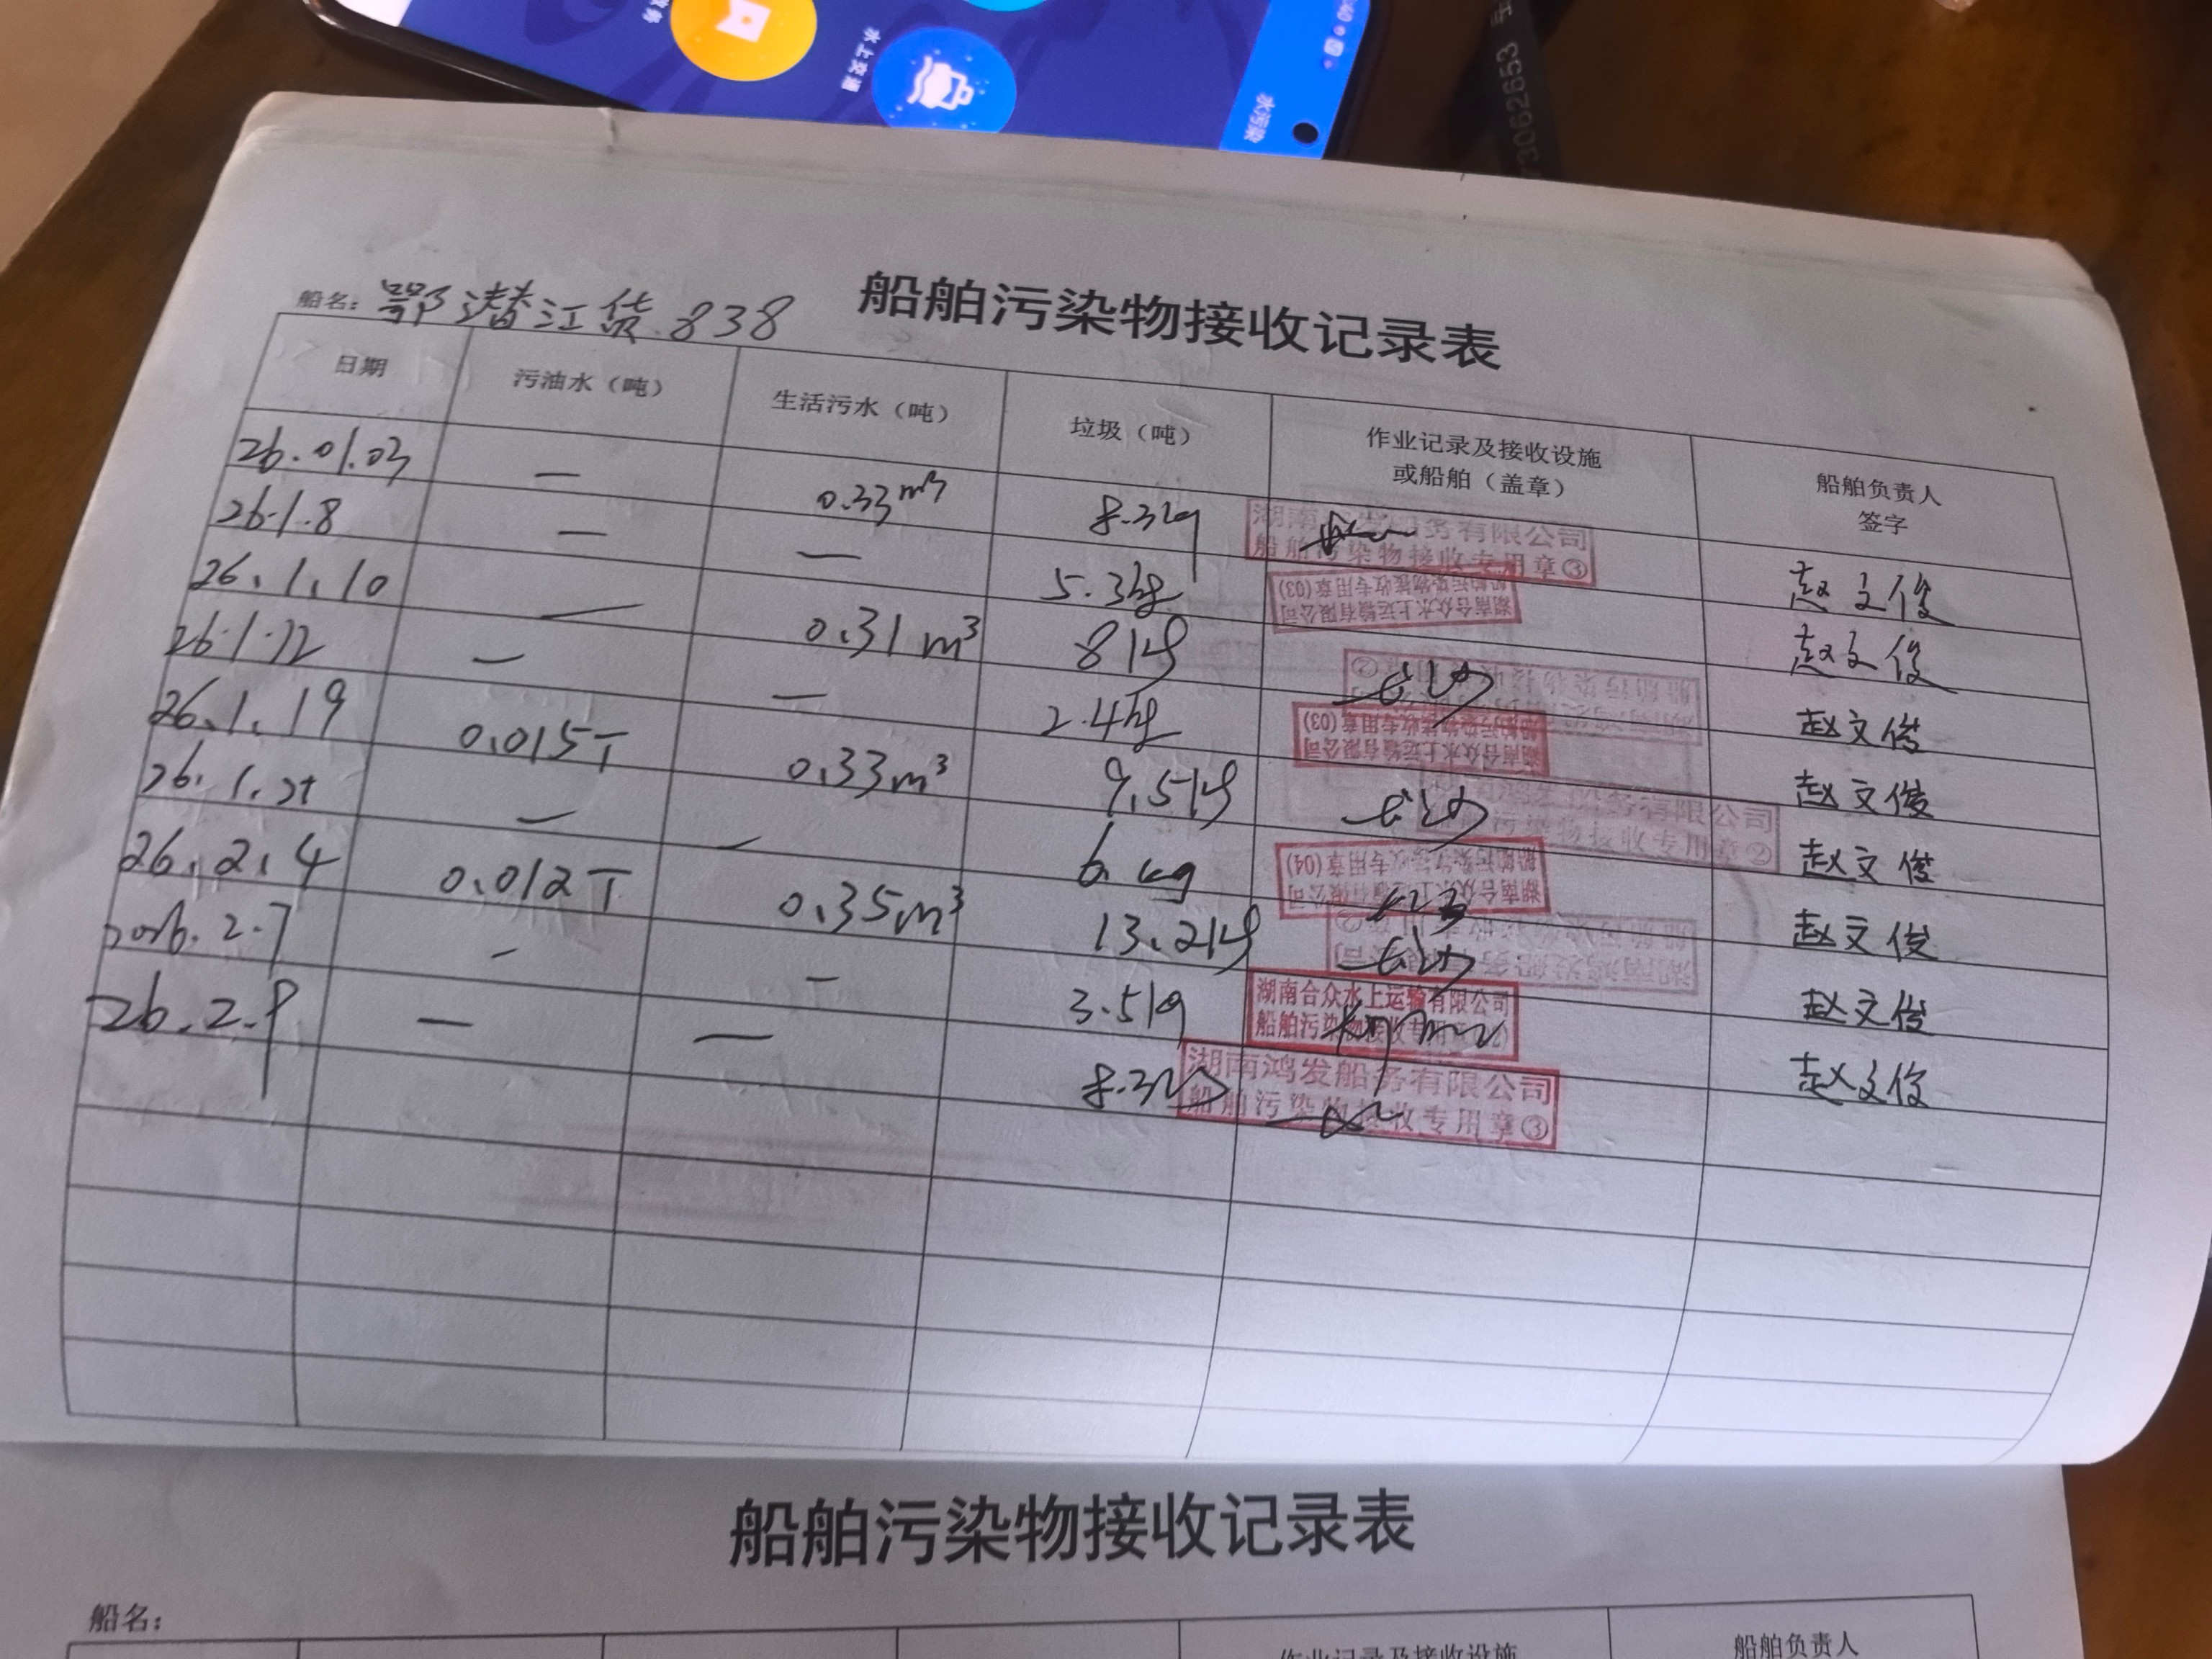 水上交通
水污染
3062653
船舶污染物接收记录表
船名: 鄂潜江货838
日期 污油水（吨） 生活污水（吨） 垃圾（吨） 作业记录及接收设施或船舶（盖章） 船舶负责人签字
26.01.03 — 0.33m³ 8.3kg 湖南 发 务有限公司 船舶污染物接收专用章③ 赵文俊
26.1.8 — — 5.3kg 湖南合众水上运输有限公司 船舶污染物接收专用章(03) 赵文俊
26.1.10 — 0.31m³ 8kg 船舶污染物接收 ② 赵文俊
26.1.12 — — 2.4kg 湖南合众水上运输有限公司 船舶污染物接收专用章(03) 赵文俊
26.1.19 0.015T 0.33m³ 9.5kg 鸿发 务有限公司 污染物接收专用章② 赵文俊
26.1. — — 6.kg 湖南合众水上运输有限公司 船舶污染物接收专用章(04) 赵文俊
26.2.4 0.012T 0.35m³ 13.2kg 湖南鸿发船务 公司 船舶污染物接收 ② 赵文俊
2026.2.7 — — 3.5kg 湖南合众水上运输有限公司 船舶污染物接收专用 赵文俊
26.2.9 — — 8.3kg 湖南鸿发船务有限公司 船舶污染物接收专用章③
船舶污染物接收记录表
船名:
作业记录及接收设施 船舶负责人